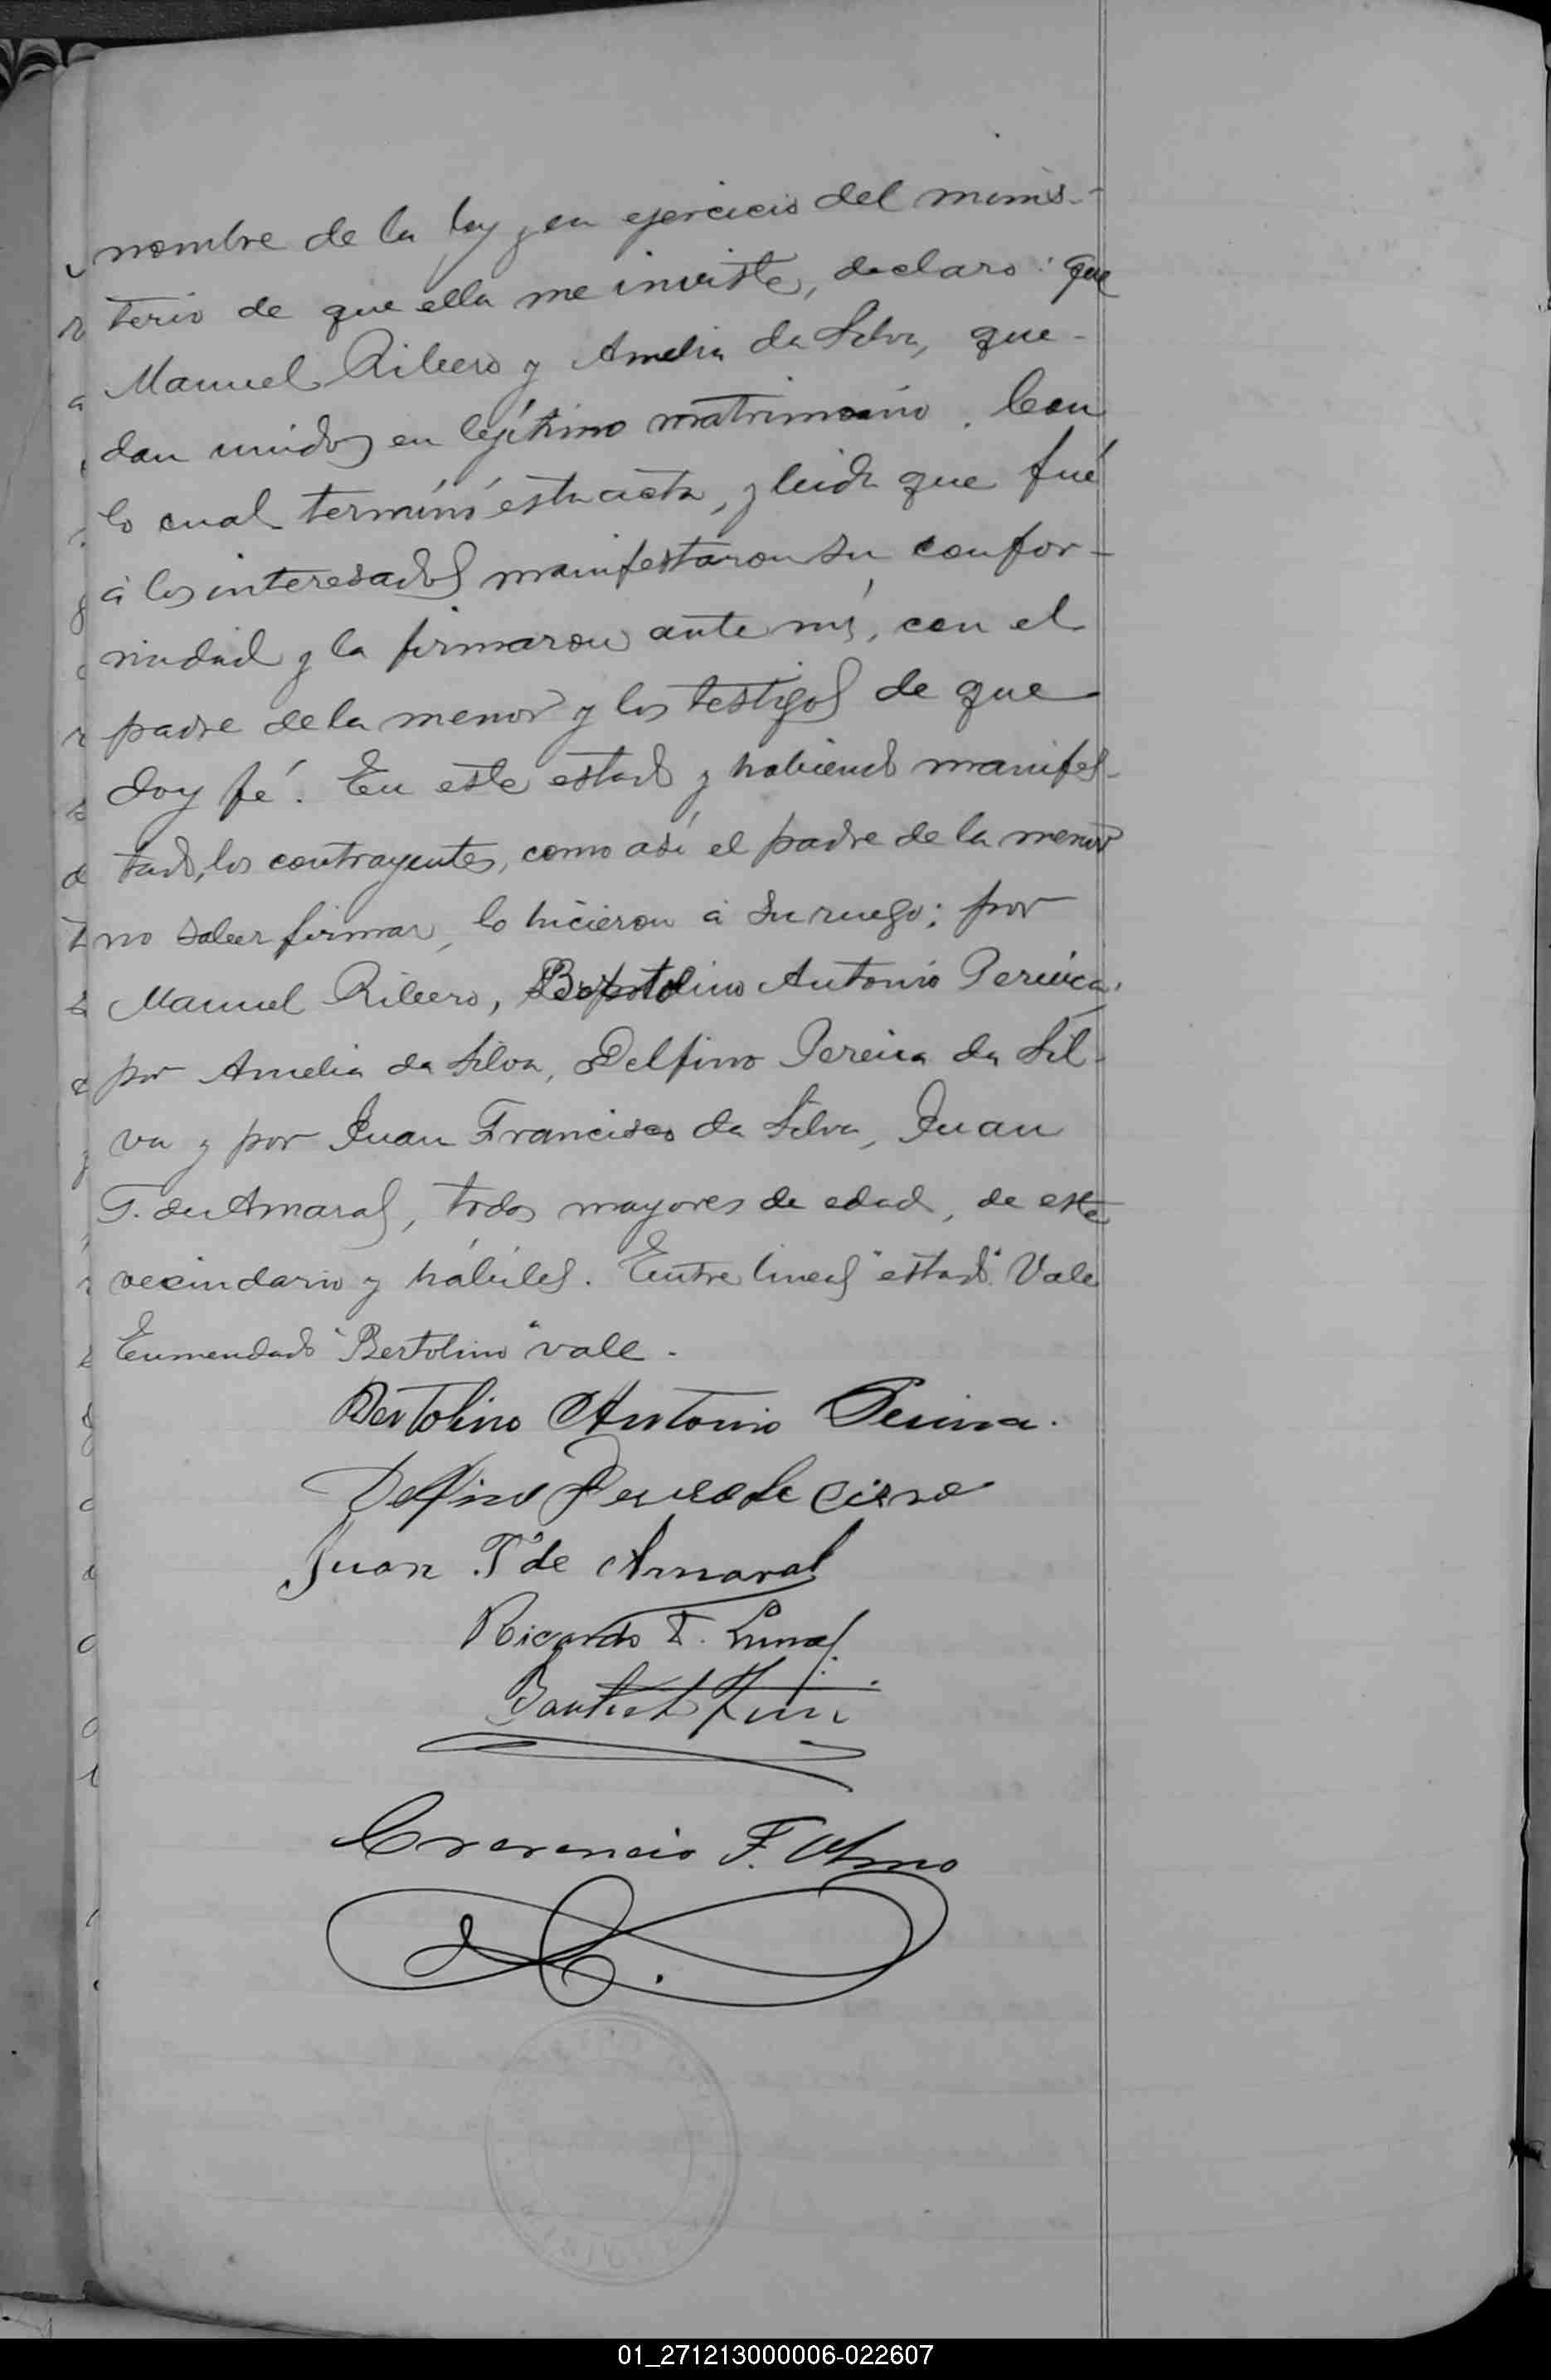 nombre de la ley y en ejercicio del minis-
terio de que ella me inviste, declaro: que
Manuel Ribero y Amelia da Silva, que-
dan unidos en legítimo matrimonio. Con
lo cual terminó esta acta, y leida que fué
á los interesados manifestaron su confor-
midad y la firmaron ante mí, con el
padre de la menor y los testigos de que
doy fé. En este estado y habiendo manifes-
tado, los contrayentes, como así el padre de la menor
no saber firmar, lo hicieron á su ruego; por
Manuel Ribero, Bertolino Antonio Pereira,
por Amelia da Silva, Delfino Pereira da Sil-
va y por Juan Francisco da Silva, Juan
T. de Amaral, todos mayores de edad, de este
vecindario y hábiles. Entre lineas "estado" Vale
Enmendado "Bertolino" vale.
Bertolino Antonio Pereira.
Delfino Pereira da
Juan T. de Amaral
Ricardo F. Luna
Crecencio F. Olmo
01_271213000006-022607